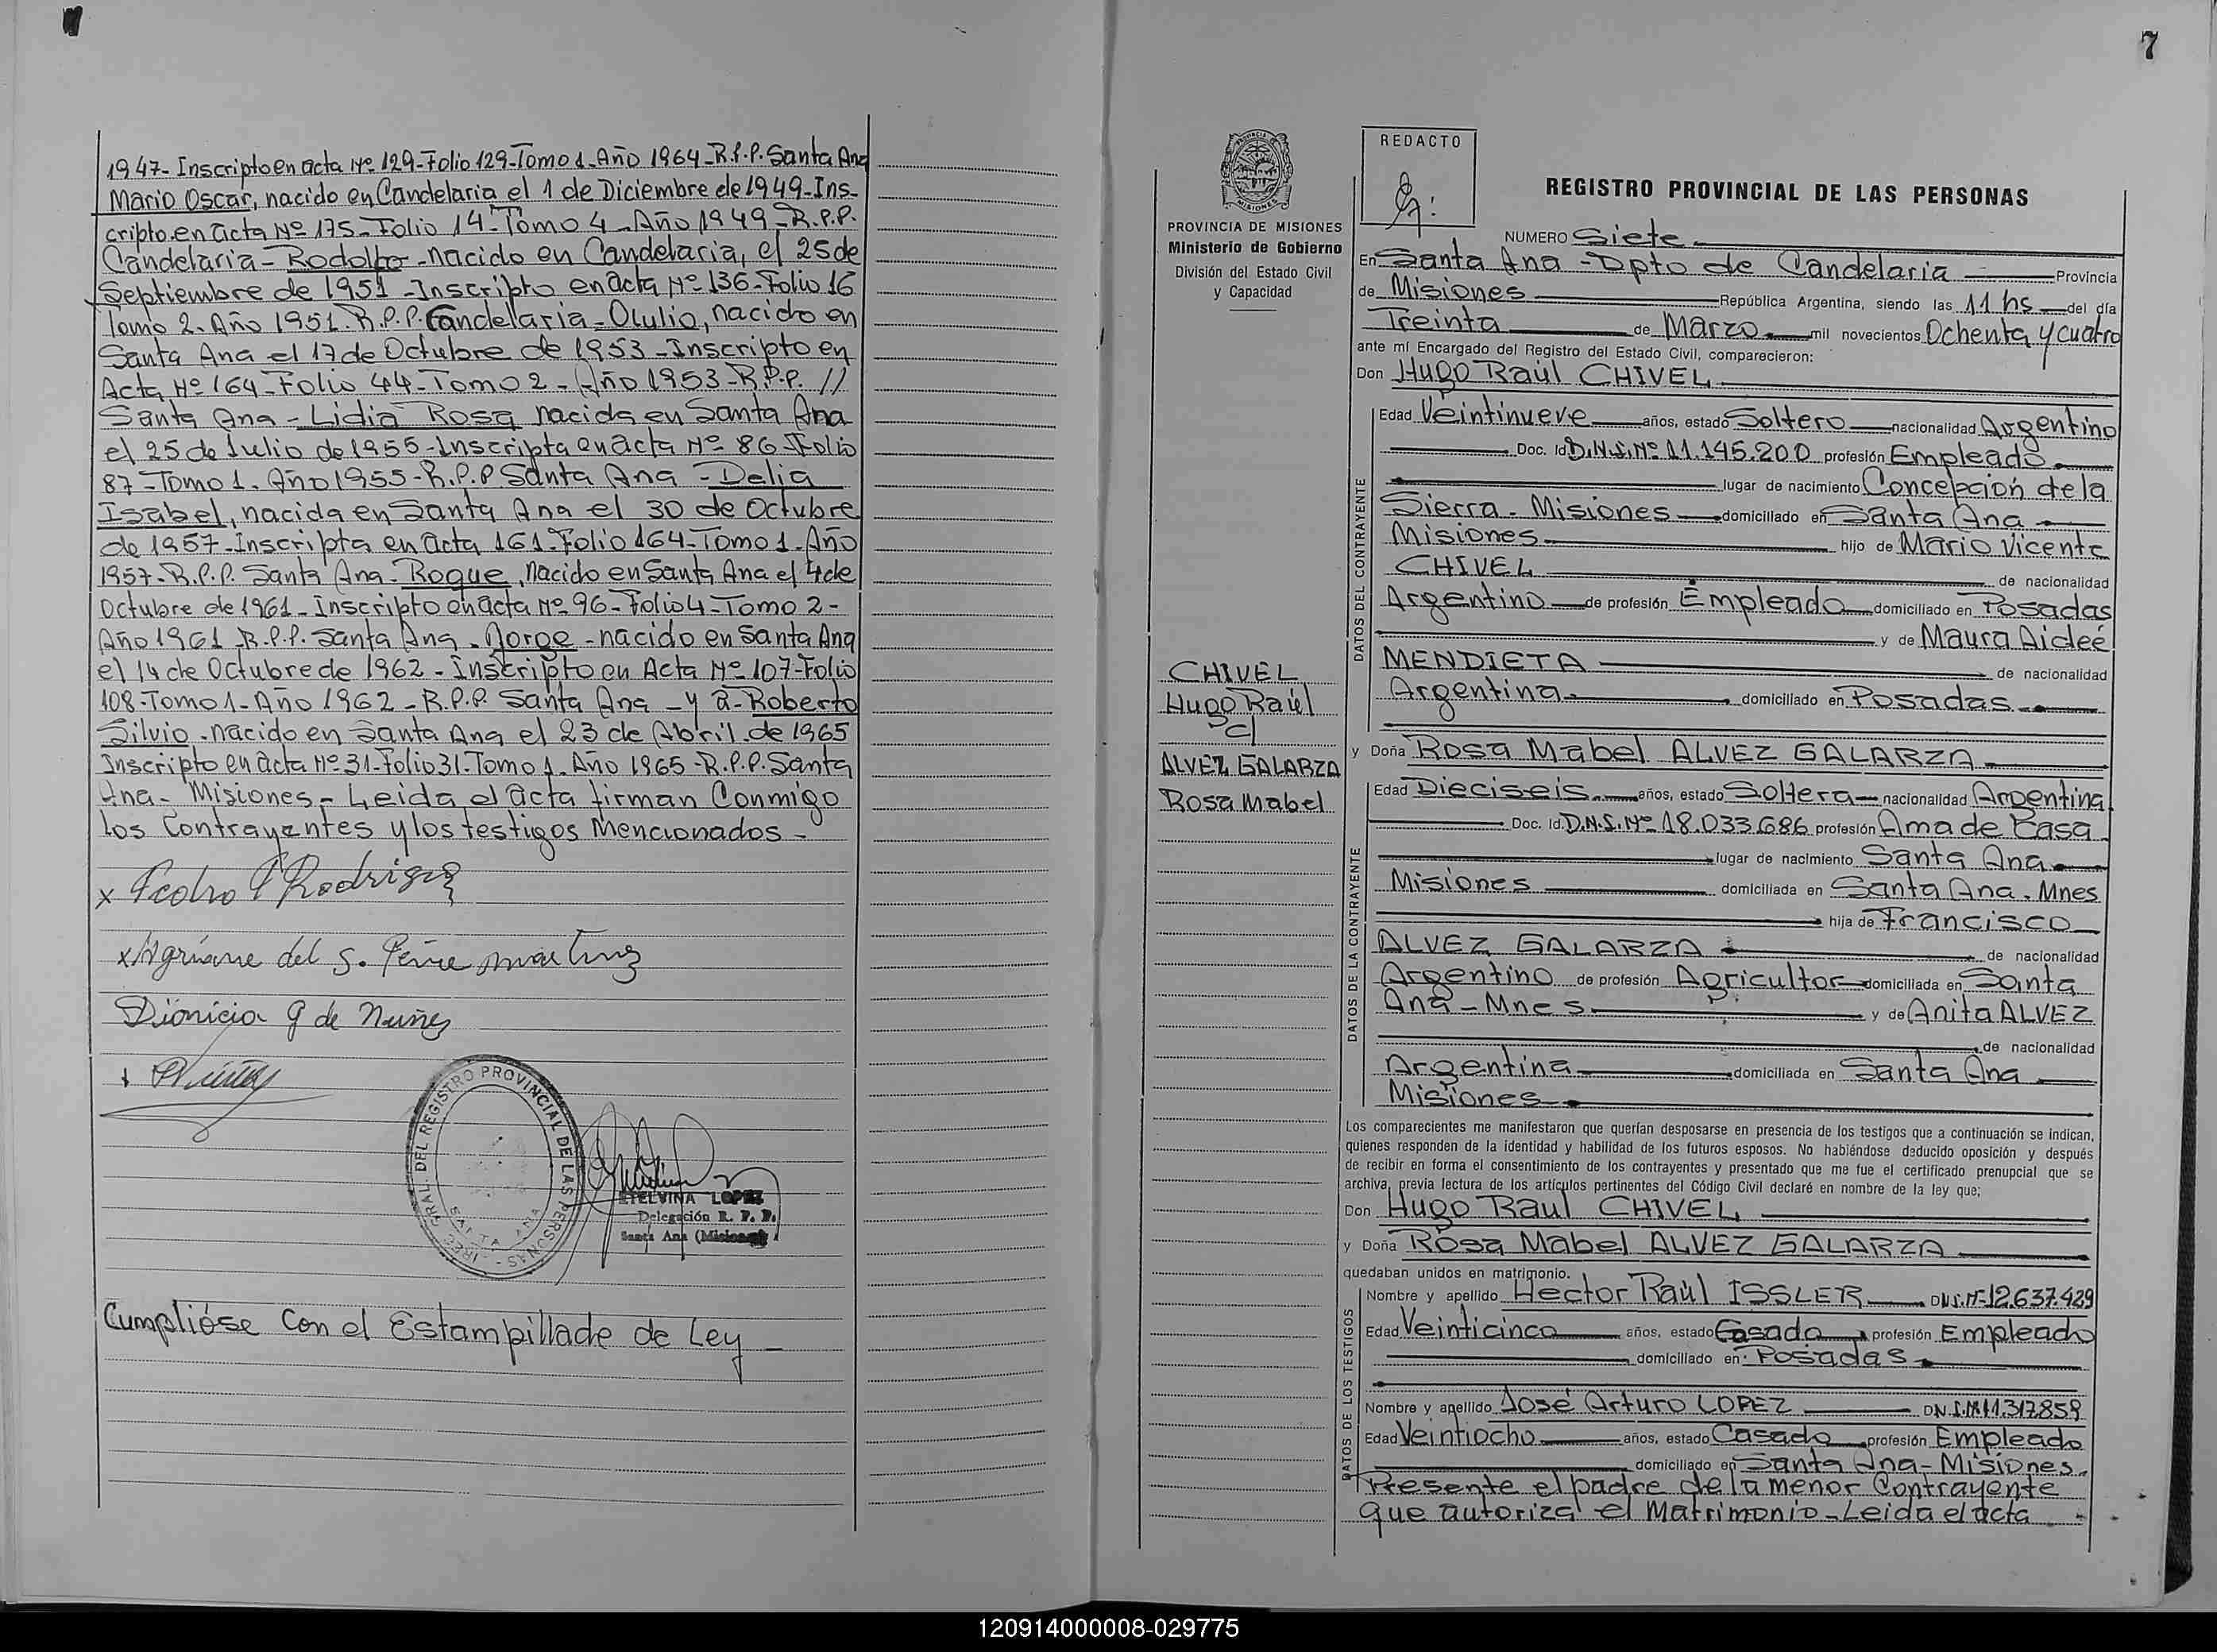 1947- Inscripto en acta Nº 129-Folio 129-Tomo 1-Año 1964-R.P.P. Santa Ana
Mario Oscar, nacido en Candelaria el 1 de Diciembre de 1949-Ins-
cripto en acta Nº 175-Folio 14-Tomo 4-Año 1949-R.P.P.
Candelaria-Rodolfo-nacido en Candelaria, el 25 de
Septiembre de 1951-Inscripto en acta Nº 136-Folio 16
Tomo 2-Año 1951-R.P.P. Candelaria-Olulio, nacido en
Santa Ana el 17 de Octubre de 1953-Inscripto en
Acta Nº 164-Folio 44-Tomo 2-Año 1953-R.P.P. //
Santa Ana-Lidia Rosa nacida en Santa Ana
el 25 de Julio de 1955-Inscripta en acta Nº 86-Folio
87-Tomo 1-Año 1955-R.P.P Santa Ana-Delia
Isabel, nacida en Santa Ana el 30 de Octubre
de 1957-Inscripta en acta 161-Folio 164-Tomo 1-Año
1957-R.P.P. Santa Ana-Roque, nacido en Santa Ana el 4 de
Octubre de 1961-Inscripto en acta Nº 96-Folio 4-Tomo 2-
Año 1961-R.P.P. Santa Ana-Jorge-nacido en Santa Ana
el 14 de Octubre de 1962-Inscripto en Acta Nº 107-Folio
108-Tomo 1-Año 1962-R.P.P. Santa Ana-y a-Roberto
Silvio-nacido en Santa Ana el 23 de Abril de 1965
Inscripto en acta Nº 31-Folio 31-Tomo 1-Año 1965-R.P.P. Santa
Ana-Misiones-Leida el acta firman Conmigo
los Contrayentes y los testigos Mencionados-
x Pedro
x del S.
Dionicia G de Nuñez
DEL REGISTRO PROVINCIAL DE LAS PERSONAS
SANTA ANA
ETELVINA LOPEZ
Delegación R. P. P.
Santa Ana (Misiones)
Cumplióse Con el Estampillade de Ley-
7
PROVINCIA DE MISIONES
Ministerio de Gobierno
División del Estado Civil
y Capacidad
CHIVEL
Hugo Raúl
c/
ALVEZ GALARZA
Rosa Mabel
REDACTO
REGISTRO PROVINCIAL DE LAS PERSONAS
NUMERO Siete
En Santa Ana-Dpto de Candelaria Provincia
de Misiones República Argentina, siendo las 11 hs del día
Treinta de Marzo mil novecientos Ochenta y cuatro
ante mí Encargado del Registro del Estado Civil, comparecieron:
Don Hugo Raúl CHIVEL
DATOS DEL CONTRAYENTE
Edad Veintinueve años, estado Soltero nacionalidad Argentino
Doc. Id D.N.I. Nº 11.145.200 profesión Empleado
lugar de nacimiento Concepción de la
Sierra-Misiones domiciliado en Santa Ana
Misiones hijo de Mario Vicente
CHIVEL de nacionalidad
Argentino de profesión Empleado domiciliado en Posadas
y de Maura Aideé
MENDIETA de nacionalidad
Argentina domiciliado en Posadas
y Doña Rosa Mabel ALVEZ GALARZA
DATOS DE LA CONTRAYENTE
Edad Dieciseis años, estado Soltera nacionalidad Argentina
Doc. Id. D.N.I. Nº 18.033.686 profesión Ama de Casa
lugar de nacimiento Santa Ana
Misiones domiciliada en Santa Ana. Mnes
hija de Francisco
ALVEZ GALARZA de nacionalidad
Argentino de profesión Agricultor domiciliada en Santa
Ana-Mnes y de Anita ALVEZ
de nacionalidad
Argentina domiciliada en Santa Ana
Misiones
Los comparecientes me manifestaron que querían desposarse en presencia de los testigos que a continuación se indican,
quienes responden de la identidad y habilidad de los futuros esposos. No habiéndose deducido oposición y después
de recibir en forma el consentimiento de los contrayentes y presentado que me fue el certificado prenupcial que se
archiva, previa lectura de los artículos pertinentes del Código Civil declaré en nombre de la ley que;
Don Hugo Raul CHIVEL
y Doña Rosa Mabel ALVEZ GALARZA
quedaban unidos en matrimonio.
DATOS DE LOS TESTIGOS
Nombre y apellido Hector Raúl ISSLER DNI.Nº 12.637.429
Edad Veinticinco años, estado Casado profesión Empleado
domiciliado en: Posadas
Nombre y apellido José Arturo LOPEZ DNI.Nº 11.317.859
Edad Veintiocho años, estado Casado profesión Empleado
domiciliado en Santa Ana-Misiones
Presente el padre de la menor Contrayente
que autoriza el Matrimonio-Leida el acta
120914000008-029775